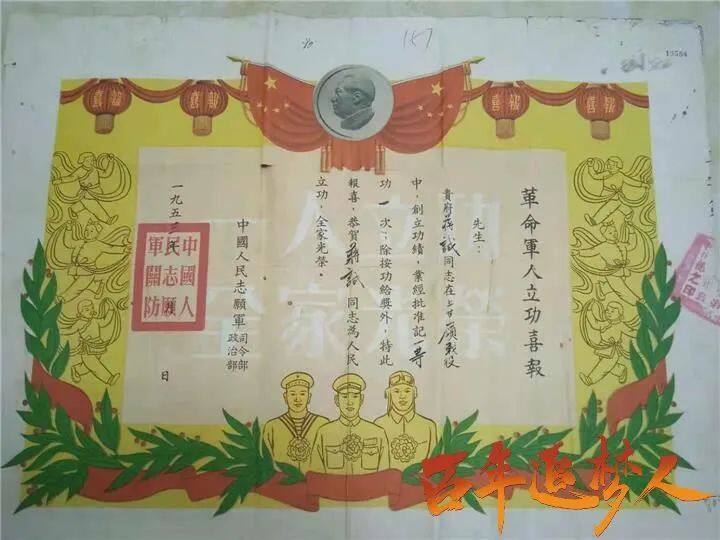 157
喜報
喜報
喜報
喜報
革命軍人立功喜報
先生：
貴府蔣誠同志在上甘嶺戰役
中，創立功績，業經批准記一等
功一次；除按功給獎外，特此
報喜，恭賀蔣誠同志為人民
立功，全家光榮。
中國人民志願軍司令部
政治部
一九五三年 月 日
中國人
民志願
軍關防
一人立功
全家光榮
百年追梦人